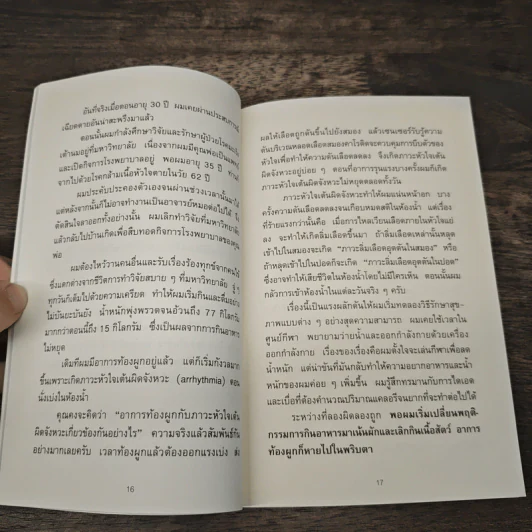 อันที่จริงเมื่อตอนอายุ 30 ปี ผมเคยผ่านประสบการณ์
เฉียดตายอันน่าสะพรึงมาแล้ว
ตอนนั้นผมกำลังศึกษาวิจัยและรักษาผู้ป่วยโรคมะเร็ง
เต้านมอยู่ที่มหาวิทยาลัย เนื่องจากผมมีคุณพ่อเป็นแพทย์
และเปิดกิจการโรงพยาบาลอยู่ พอผมอายุ 35 ปี ท่านก็
จากไปด้วยโรคกล้ามเนื้อหัวใจตายในวัย 62 ปี
ผมประคับประคองตัวเองจนผ่านช่วงเวลานั้นมาได้
แต่หลังจากนั้นก็ไม่อาจทำงานเป็นอาจารย์หมอต่อไปได้
ตัดสินใจลาออกทั้งอย่างนั้น ผมเลิกทำวิจัยที่มหาวิทยาลัย
แล้วกลับไปบ้านเกิดเพื่อสืบทอดกิจการโรงพยาบาลของคุณ
พ่อ
ผมต้องไหว้วานคนอื่นและรับเรื่องร้องทุกข์จากคนไข้
ซึ่งแตกต่างจากชีวิตการทำวิจัยสบาย ๆ ที่มหาวิทยาลัย
ทุกวันก็เต็มไปด้วยความเครียด ทำให้ผมเริ่มกินและดื่มอย่าง
ไม่บันยะบันยัง น้ำหนักพุ่งพรวดจนอ้วนถึง 77 กิโลกรัม
มากกว่าตอนนี้ถึง 15 กิโลกรัม ซึ่งเป็นผลจากการกินอาหาร
ไม่หยุด
เดิมทีผมมีอาการท้องผูกอยู่แล้ว แต่ก็เริ่มกังวลมาก
ขึ้นเพราะเกิดภาวะหัวใจเต้นผิดจังหวะ (arrhythmia) ตอน
นั่งเบ่งในห้องน้ำ
คุณคงจะคิดว่า “อาการท้องผูกกับภาวะหัวใจเต้น
ผิดจังหวะเกี่ยวข้องกันอย่างไร” ความจริงแล้วสัมพันธ์กัน
อย่างมากเลยครับ เวลาท้องผูกแล้วต้องออกแรงเบ่ง ส่ง
16
ผลให้เลือดถูกดันขึ้นไปยังสมอง แล้วเซนเซอร์รับรู้ความ
ดันบริเวณหลอดเลือดสมองคาโรติดจะควบคุมการบีบตัวของ
หัวใจเพื่อทำให้ความดันเลือดลดลง จึงเกิดภาวะหัวใจเต้น
ผิดจังหวะอยู่บ่อย ๆ ตอนที่อาการรุนแรงบางครั้งผมก็เกิด
ภาวะหัวใจเต้นผิดจังหวะไม่หยุดตลอดทั้งวัน
ภาวะหัวใจเต้นผิดจังหวะทำให้ผมแน่นหน้าอก บาง
ครั้งความดันเลือดลดลงจนเกือบหมดสติในห้องน้ำ แต่เรื่อง
ที่ร้ายแรงกว่านั้นคือ เมื่อการไหลเวียนเลือดภายในหัวใจแย่
ลง จะทำให้เกิดลิ่มเลือดขึ้นมา ถ้าลิ่มเลือดเหล่านั้นหลุด
เข้าไปในสมองจะเกิด “ภาวะลิ่มเลือดอุดตันในสมอง” หรือ
ถ้าหลุดเข้าไปในปอดก็จะเกิด “ภาวะลิ่มเลือดอุดตันในปอด”
ซึ่งอาจทำให้เสียชีวิตในห้องน้ำโดยไม่มีใครเห็น ตอนนั้นผม
กลัวการเข้าห้องน้ำในแต่ละวันจริง ๆ ครับ
เรื่องนี้เป็นแรงผลักดันให้ผมเริ่มทดลองวิธีรักษาสุข-
ภาพแบบต่าง ๆ อย่างสุดความสามารถ ผมเคยใช้เวลาใน
ศูนย์กีฬา พยายามว่ายน้ำและออกกำลังกายด้วยเครื่อง
ออกกำลังกาย เรื่องของเรื่องคือผมตั้งใจจะเล่นกีฬาเพื่อลด
น้ำหนัก แต่น่าขันที่มันกลับทำให้ความอยากอาหารและน้ำ
หนักของผมค่อย ๆ เพิ่มขึ้น ผมรู้สึกทรมานกับการไดเอต
และเบื่อที่ต้องคำนวณปริมาณแคลอรีจนยากที่จะทำต่อไปได้
ระหว่างที่ลองผิดลองถูก พอผมเริ่มเปลี่ยนพฤติ-
กรรมการกินอาหารมาเน้นผักและเลิกกินเนื้อสัตว์ อาการ
ท้องผูกก็หายไปในพริบตา
17